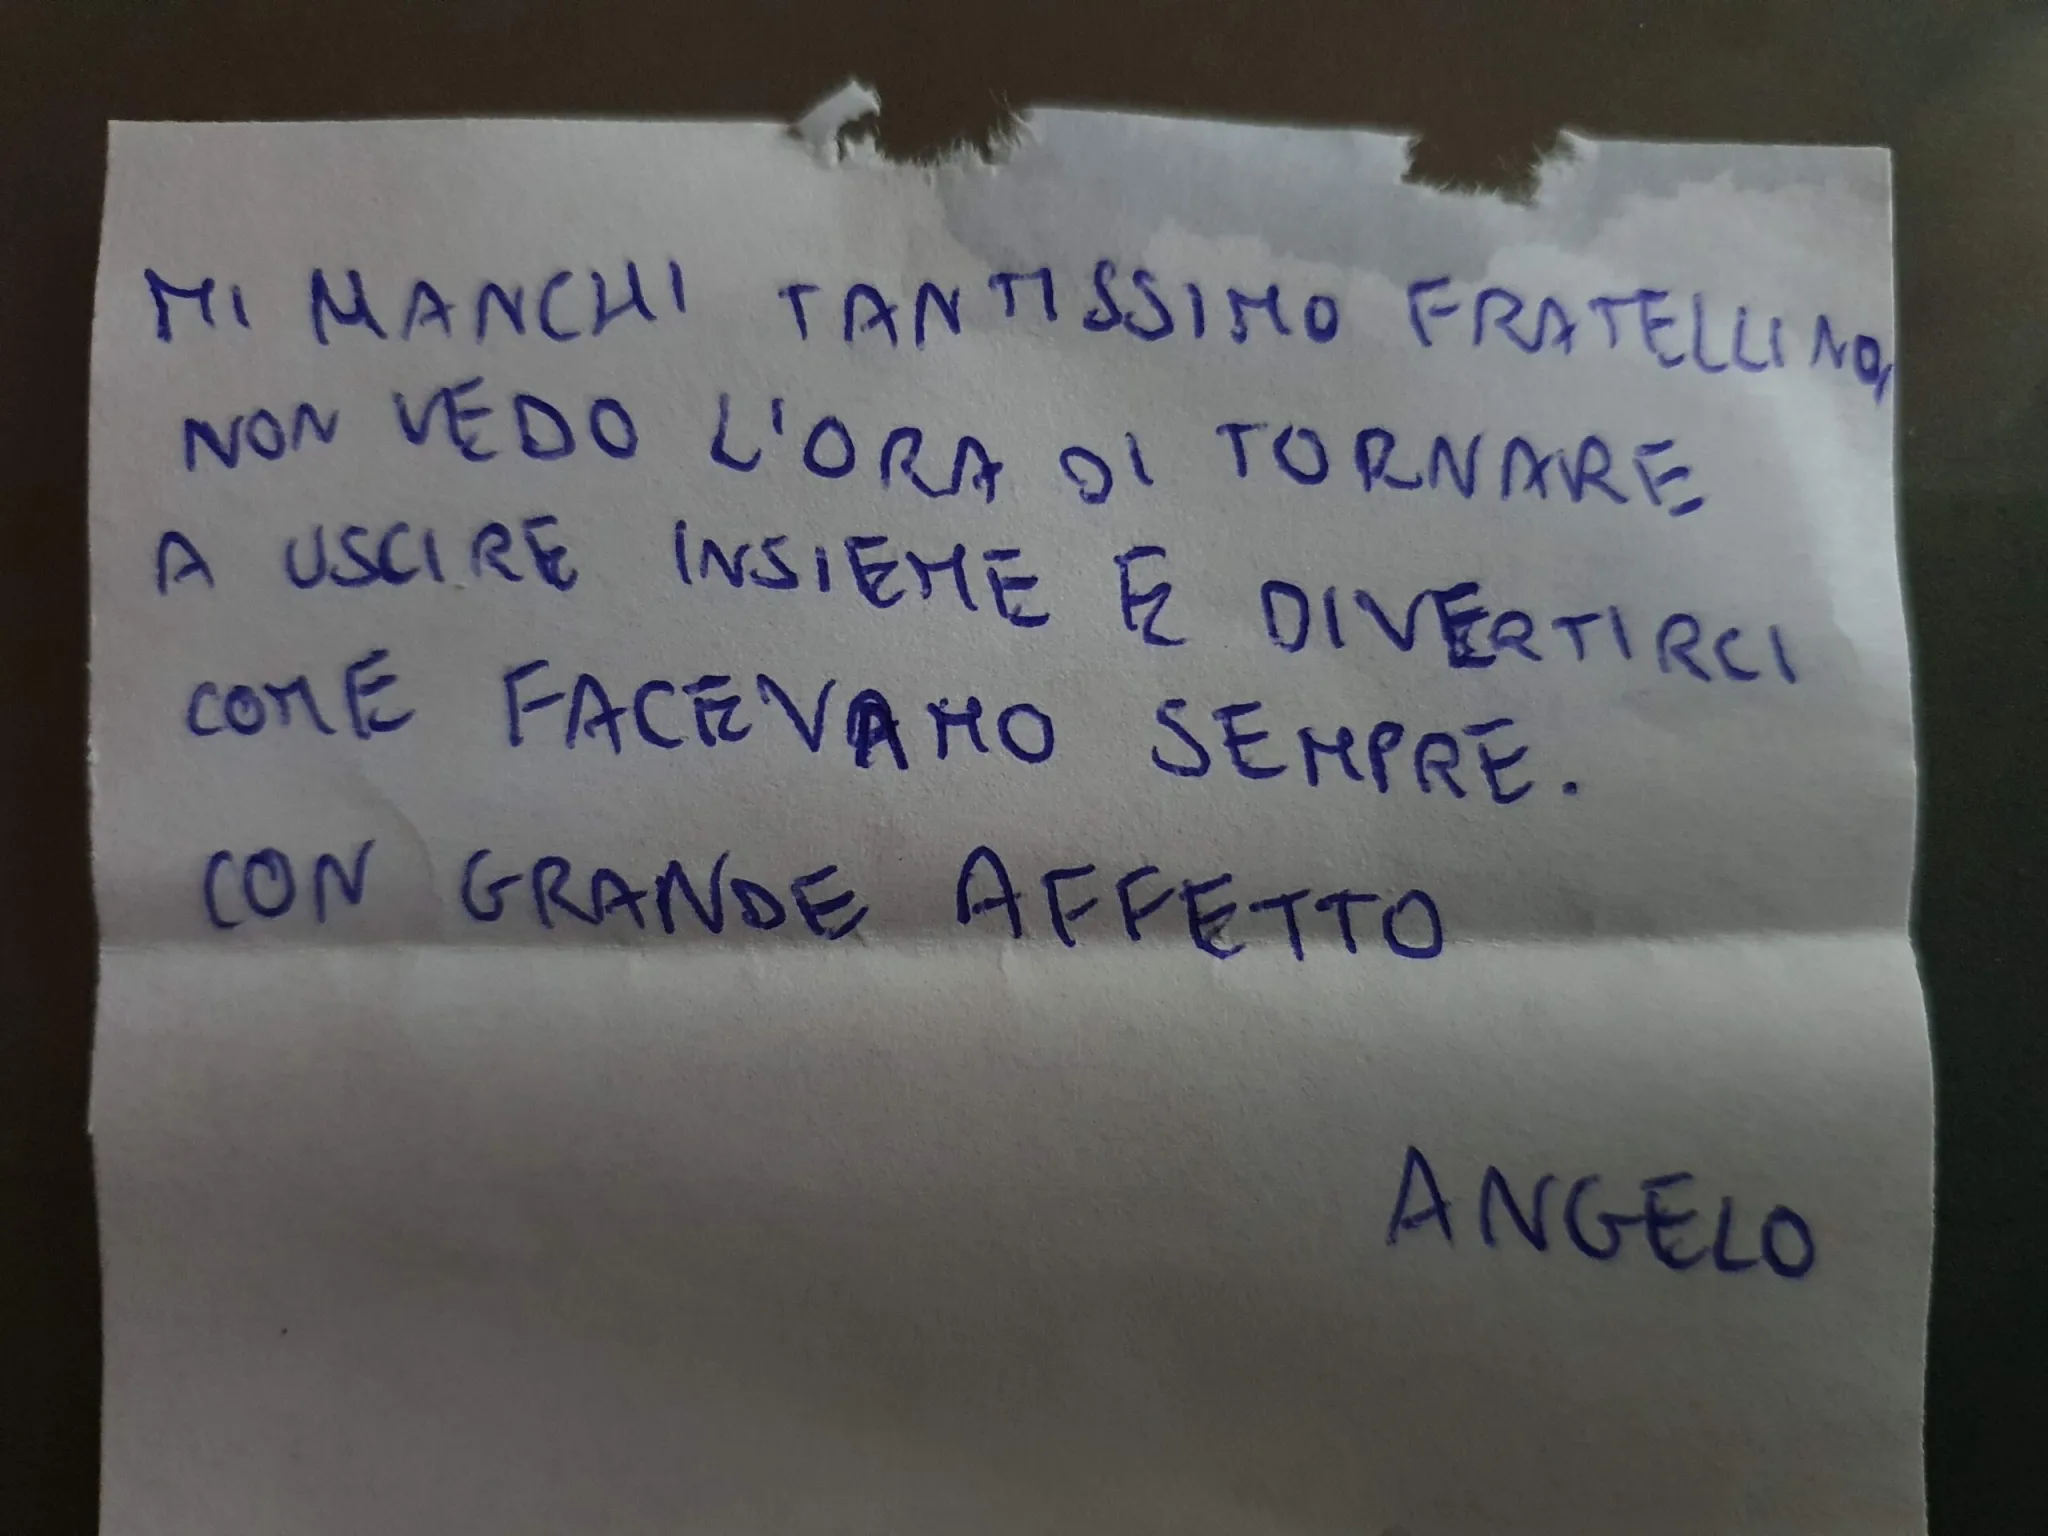 MI MANCHI TANTISSIMO FRATELLINO,
NON VEDO L'ORA DI TORNARE
A USCIRE INSIEME E DIVERTIRCI
COME FACEVAMO SEMPRE.
CON GRANDE AFFETTO
ANGELO